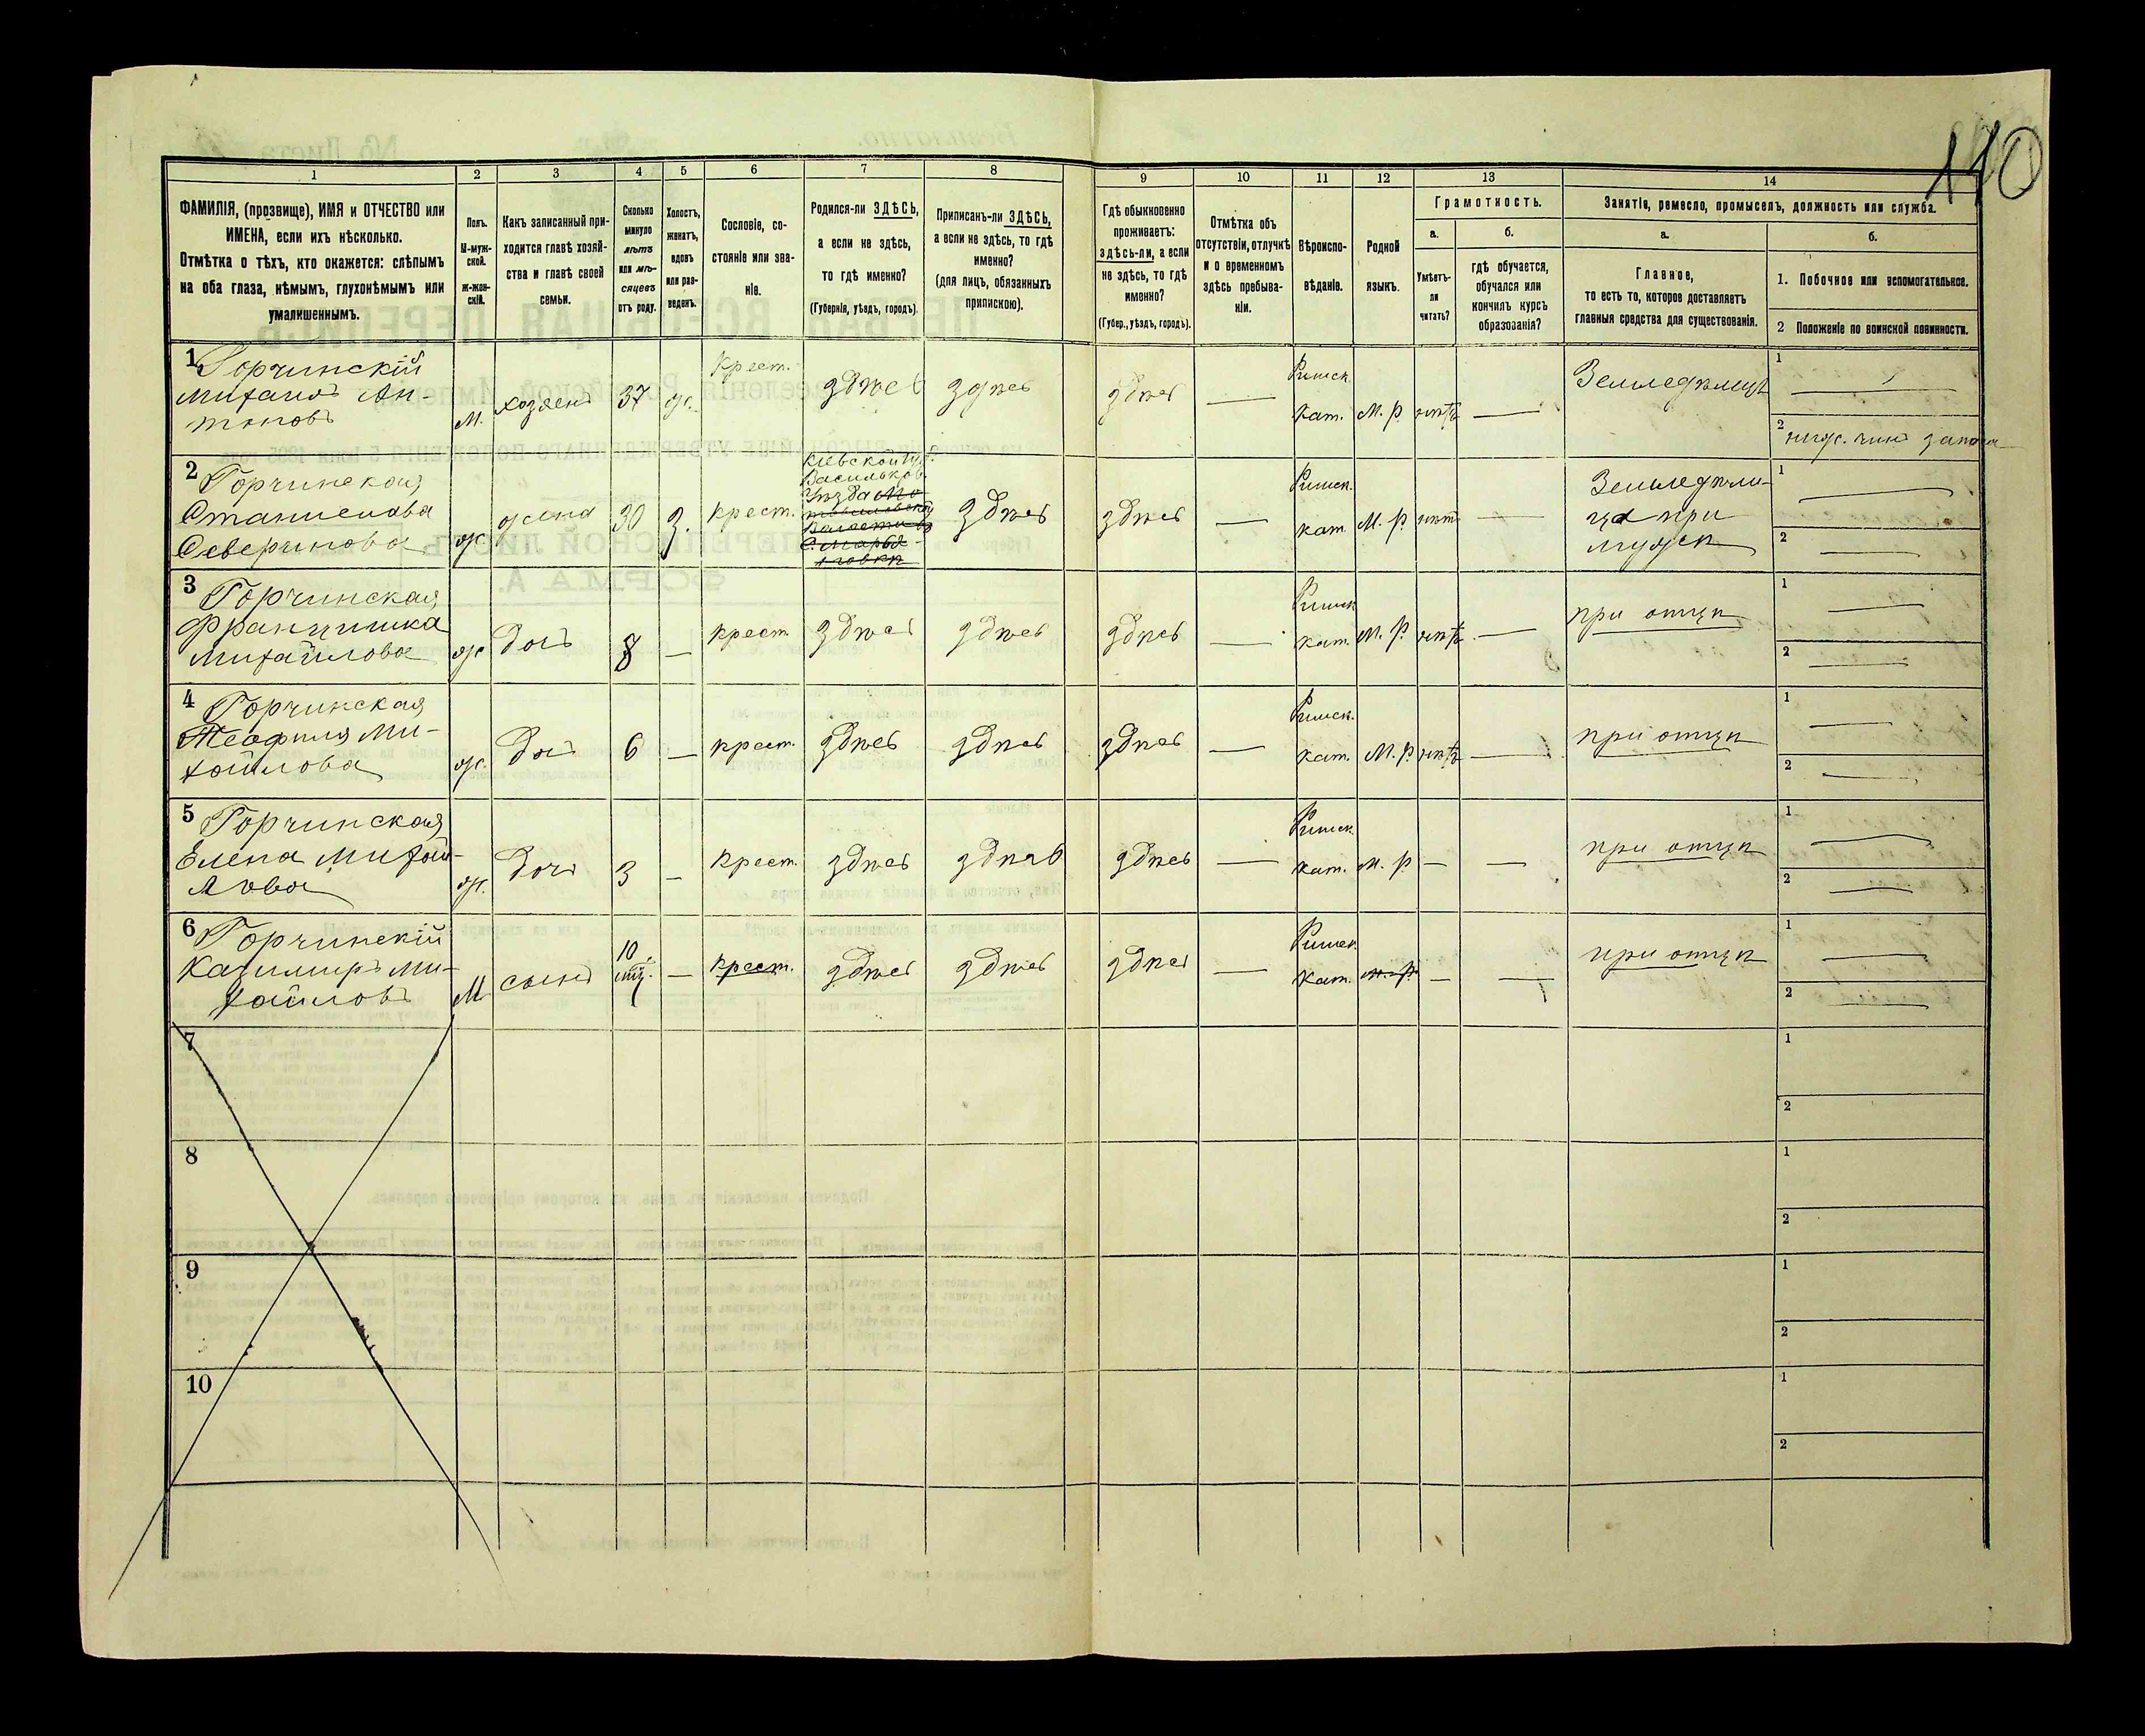 110
1 2 3 4 5 6 7 8 9 10 11 12 13 14
ФАМИЛІЯ, (прозвище), ИМЯ и ОТЧЕСТВО или
ИМЕНА, если ихъ нѣсколько.
Отмѣтка о тѣхъ, кто окажется: слѣпымъ
на оба глаза, нѣмымъ, глухонѣмымъ или
умалишеннымъ.
Полъ.
М-муж-
ской.
Ж-жен-
скій.
Какъ записанный при-
ходится главѣ хозяй-
ства и главѣ своей
семьи.
Сколько
минуло
лѣтъ
или мѣ-
сяцевъ
отъ роду.
Холостъ,
женатъ,
вдовъ
или раз-
веденъ.
Сословіе, со-
стояніе или зва-
ніе.
Родился-ли ЗДѢСЬ,
а если не здѣсь,
то гдѣ именно?
(Губернія, уѣздъ, городъ).
Приписанъ-ли ЗДѢСЬ,
а если не здѣсь, то гдѣ
именно?
(для лицъ, обязанныхъ
припискою).
Гдѣ обыкновенно
проживаетъ:
здѣсь-ли, а если
не здѣсь, то гдѣ
именно?
(Губер., уѣздъ, городъ).
Отмѣтка объ
отсутствіи, отлучкѣ
и о временномъ
здѣсь пребыва-
ніи.
Вѣроиспо-
вѣданіе.
Родной
языкъ.
Грамотность.
а.
Умѣетъ-
ли
читать?
б.
гдѣ обучается,
обучался или
кончилъ курсъ
образованія?
Занятіе, ремесло, промыселъ, должность или служба.
а.
Главное,
то есть то, которое доставляетъ
главныя средства для существованія.
б.
1. Побочное или вспомогательное.
2 Положеніе по воинской повинности.
1 Горчинскій
Михаилъ Ан-
тоновъ
М. хозяинъ 37 ж. Крест. здѣсь здѣсь здѣсь —
Римск.
кат. М. р. нѣтъ —
Земледѣлецъ
1 —
2 ниж. чинъ запаса
2 Горчинская
Станислава
Северинова
ж жена 30 З. крест.
Кіевской губ.
Васильков.
Уѣзда
здѣсь здѣсь —
Римск.
кат М. р. нѣтъ —
Земледѣли-
ца при
мужѣ
1 —
2 —
3 Горчинская
Францишка
Михайлова
ж дочь 8 — крест. здѣсь здѣсь здѣсь —
Римск
кат. М. р. нѣтъ —
при отцѣ
1 —
2 —
4 Горчинская
Теофиля Ми-
хайлова
ж. дочь 6 — крест. здѣсь здѣсь здѣсь —
Римск.
кат. М. р. нѣтъ —
при отцѣ
1 —
2 —
5 Горчинская
Елена Михай-
лова
ж. дочь 3 — Крест. здѣсь здѣсь здѣсь —
Римск
кат. М. р. — —
при отцѣ
1 —
2 —
6 Горчинскій
Казимиръ Ми-
хайловъ
М сынъ 10 мц. — крест. здѣсь здѣсь здѣсь —
Римск.
кат. м. р. — —
при отцѣ
1 —
2 —
7 1
2
8 1
2
9 1
2
10 1
2